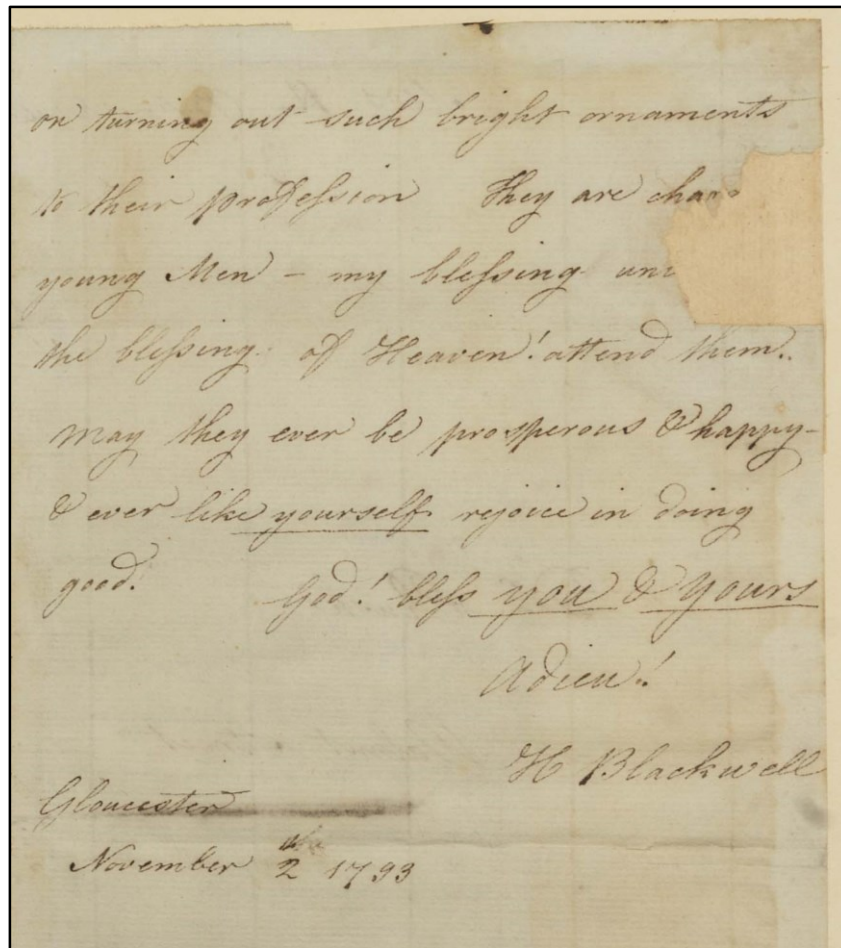 on turning out such bright ornaments
to their profession They are char
young Men - my blessing un
the blessing of Heaven! attend them.
may they ever be prosperous & happy-
& ever like yourself rejoice in doing
good! God! bless you & yours
Adieu!
H Blackwell
Gloucester
November 2 1793